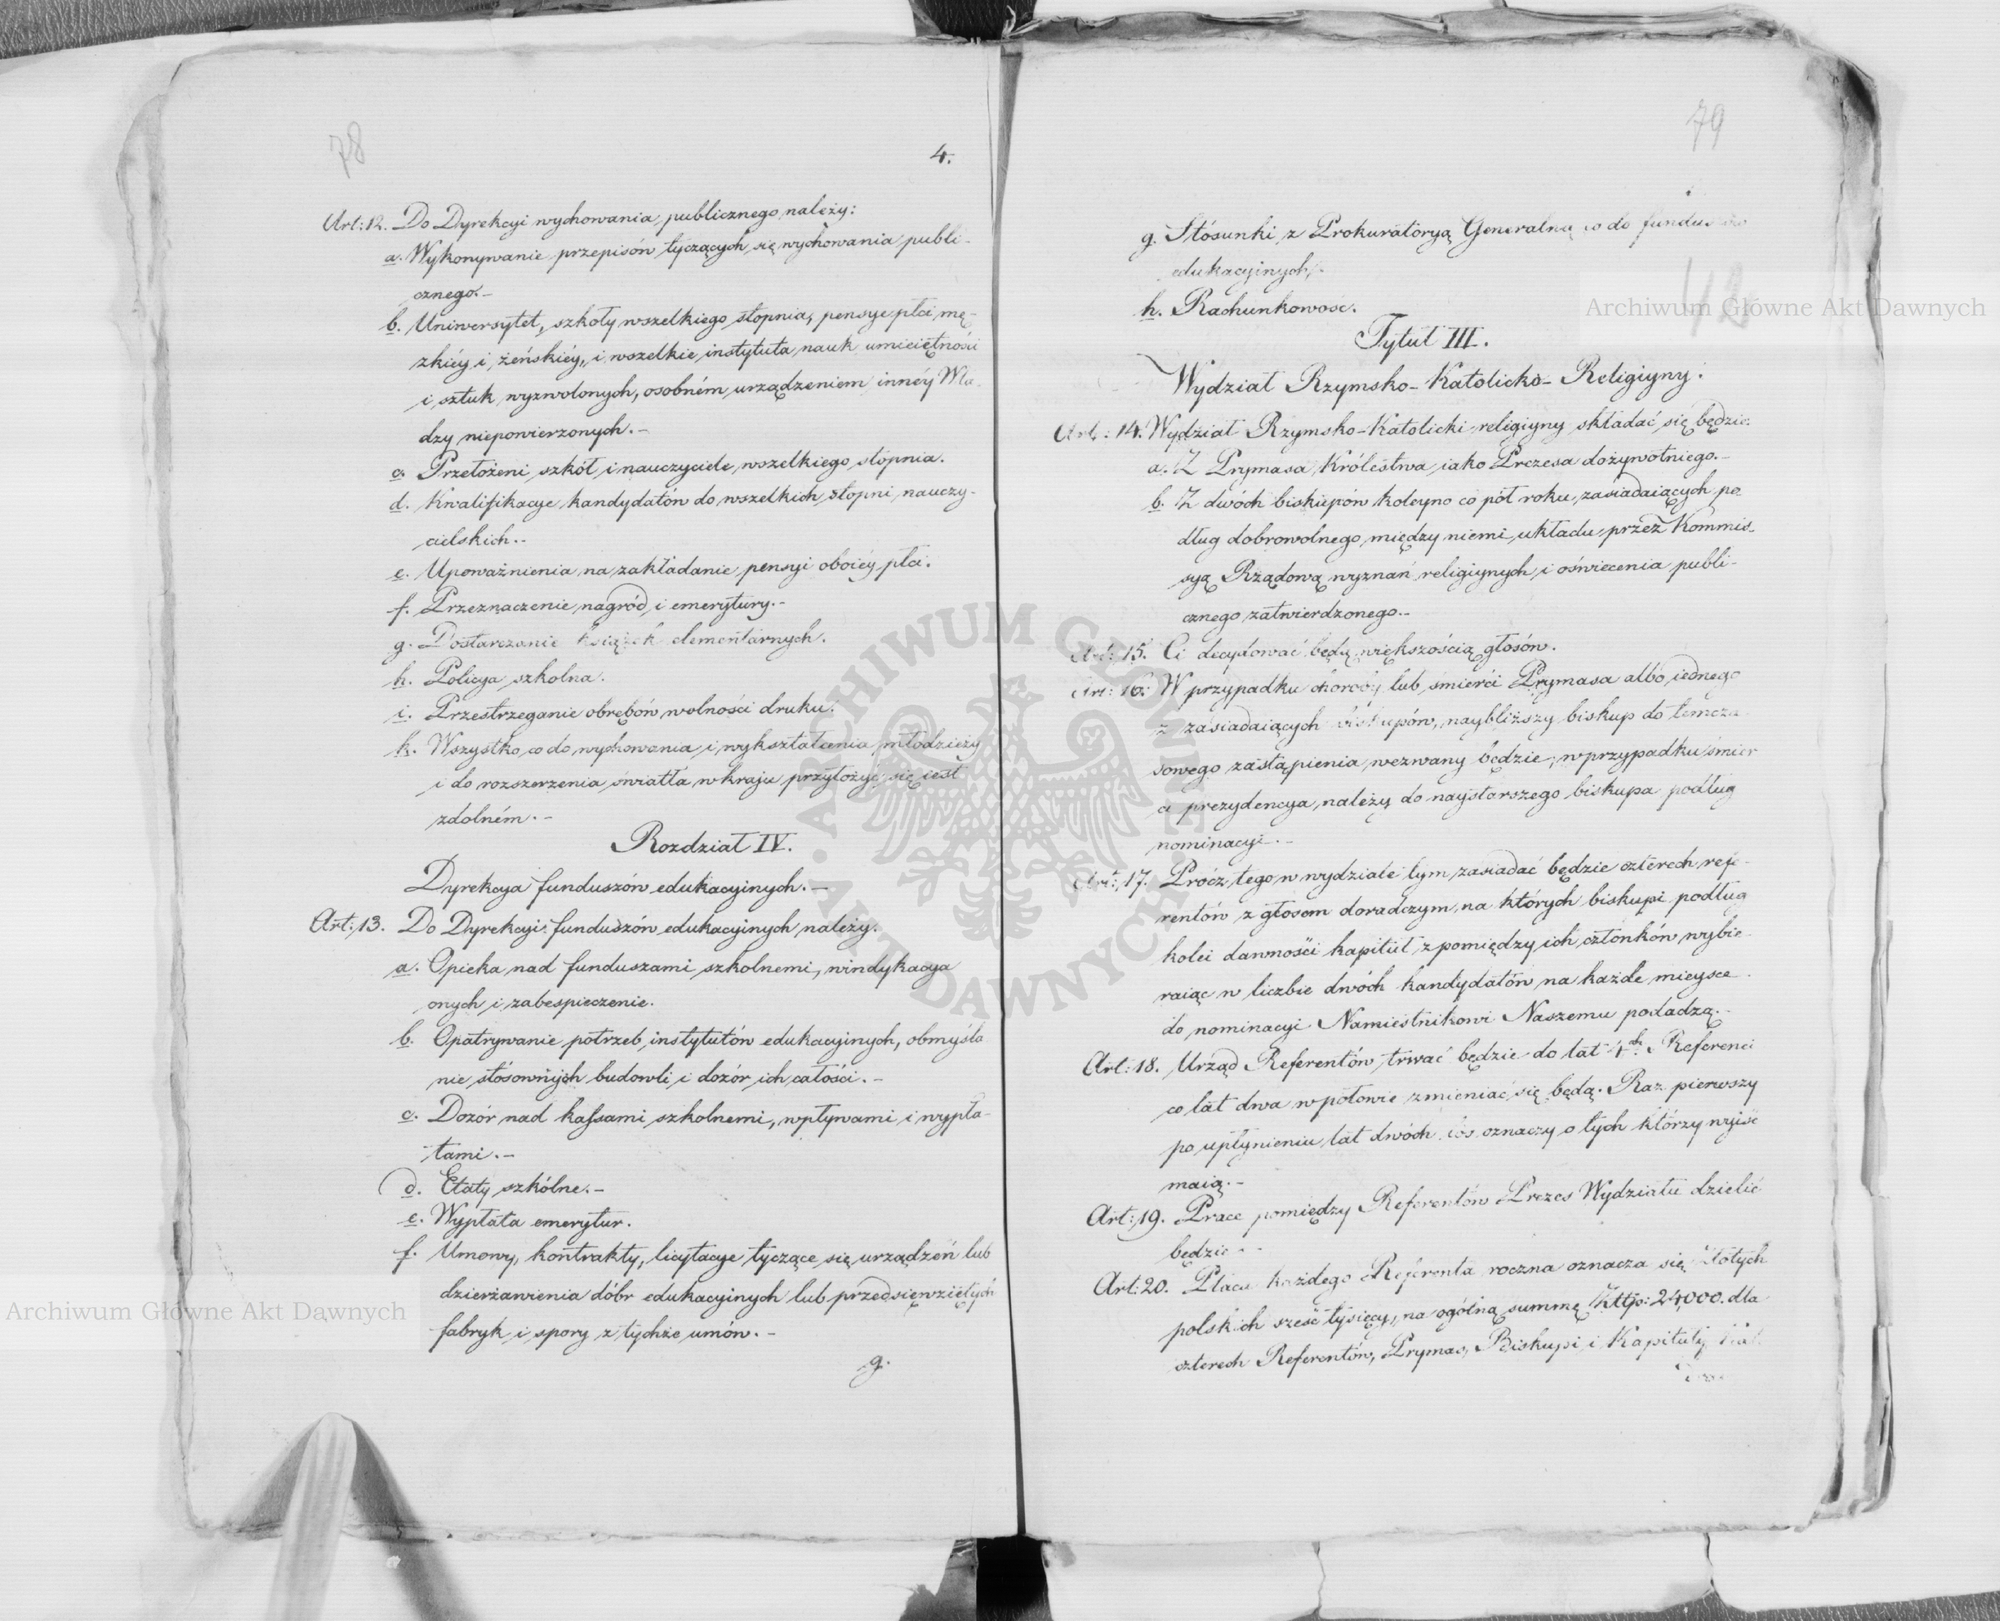 78
4.
Art: 12. Do Dyrekcyi wychowania publicznego należy:
a. Wykonywanie przepisów tyczących się wychowania publi-
cznego.-
b. Uniwersytet, szkoły wszelkiego stopnia, pensye płci mę-
zkiéy i żeńskiéy, i wszelkie instytuta nauk umieiętności
i sztuk wyzwolonych, osobném urządzeniem innéy Wła-
dzy niepowierzonych.-
c. Przełożeni szkół i nauczyciele wszelkiego stopnia.
d. Kwalifikacye kandydatów do wszelkich stopni nauczy-
cielskich.-
e. Upoważnienia na zakładanie pensyi oboiéy płci.
f. Przeznaczenie nagród i emerytury.-
g. Dostarczanie książek elementarnych.
h. Policya szkolna.
i. Przestrzeganie obrębów wolności druku.
k. Wszystko, co do wychowania i wykształcenia młodzieży
i do rozszerzenia światła w kraju przyłożyć się iest
zdolném.-
Rozdział IV.
Dyrekcya funduszów edukacyinych.-
Art: 13. Do Dyrekcyi funduszów edukacyinych należy.
a. Opieka nad funduszami szkolnemi, windykacya
onych i zabespieczenie.
b. Opatrywanie potrzeb instytutów edukacyinych, obmyśla
nie stósownych budowli i dozór ich całości.-
c. Dozór nad kassami szkolnemi, wpływami i wypła-
tami.-
d. Etaty szkólne.-
e. Wypłata emerytur.
f. Umowy, kontrakty, licytacye tyczące się urządzeń lub
dzierżawienia dóbr edukacyinych lub przedsięwziętych
fabryk i spory z tychże umów.-
g.
79
g. Stósunki z Prokuratoryą Generalną co do funduszów
edukacyinych.
h. Rachunkowość.
Tytuł III.
Wydział Rzymsko-Katolicko-Religiyny.
Art: 14. Wydział Rzymsko-Katolicki religiyny składać się będzie.
a. Z Prymasa Królestwa iako Prezesa dożywotniego.-
b. Z dwóch biskupów koleyno co pół roku zasiadaiących po
dług dobrowolnego między niemi układu przez Kommis-
syą Rządową wyznań religiynych i oświecenia publi-
cznego zatwierdzonego.-
Art: 15. Ci decydować będą większością głosów.
Art: 16. W przypadku choroby lub śmierci Prymasa albo iednego
z zasiadaiących biskupów, naybliższy biskup do tymcza
sowego zastąpienia wezwany będzie, w przypadku śmier
ci prezydencya należy do naystarszego biskupa podług
nominacyi.-
Art: 17. Prócz tego w wydziale tym zasiadać będzie czterech refe-
rentów z głosem doradczym, na których biskupi podług
kolei dawności kapituł z pomiędzy ich członków wybie
raiąc w liczbie dwóch kandydatów na każde mieysce
do nominacyi Namiestnikowi Naszemu podadzą.-
Art: 18. Urząd Referentów trwać będzie do lat 4ch. Referenci
co lat dwa w połowie zmieniać się będą. Raz pierwszy
po upłynieniu lat dwóch los oznaczy o tych którzy wyiść
maią.-
Art: 19. Prace pomiędzy Referentów Prezes Wydziału dzielić
będzie.-
Art: 20. Płaca każdego Referenta roczna oznacza się Złotych
polskich sześć tysięcy, na ogólną summę Złtp: 24,000. dla
czterech Referentów, Prymas, Biskupi i Kapituły
Archiwum Główne Akt Dawnych
Archiwum Główne Akt Dawnych
ARCHIWUM GŁÓWNE AKT DAWNYCH